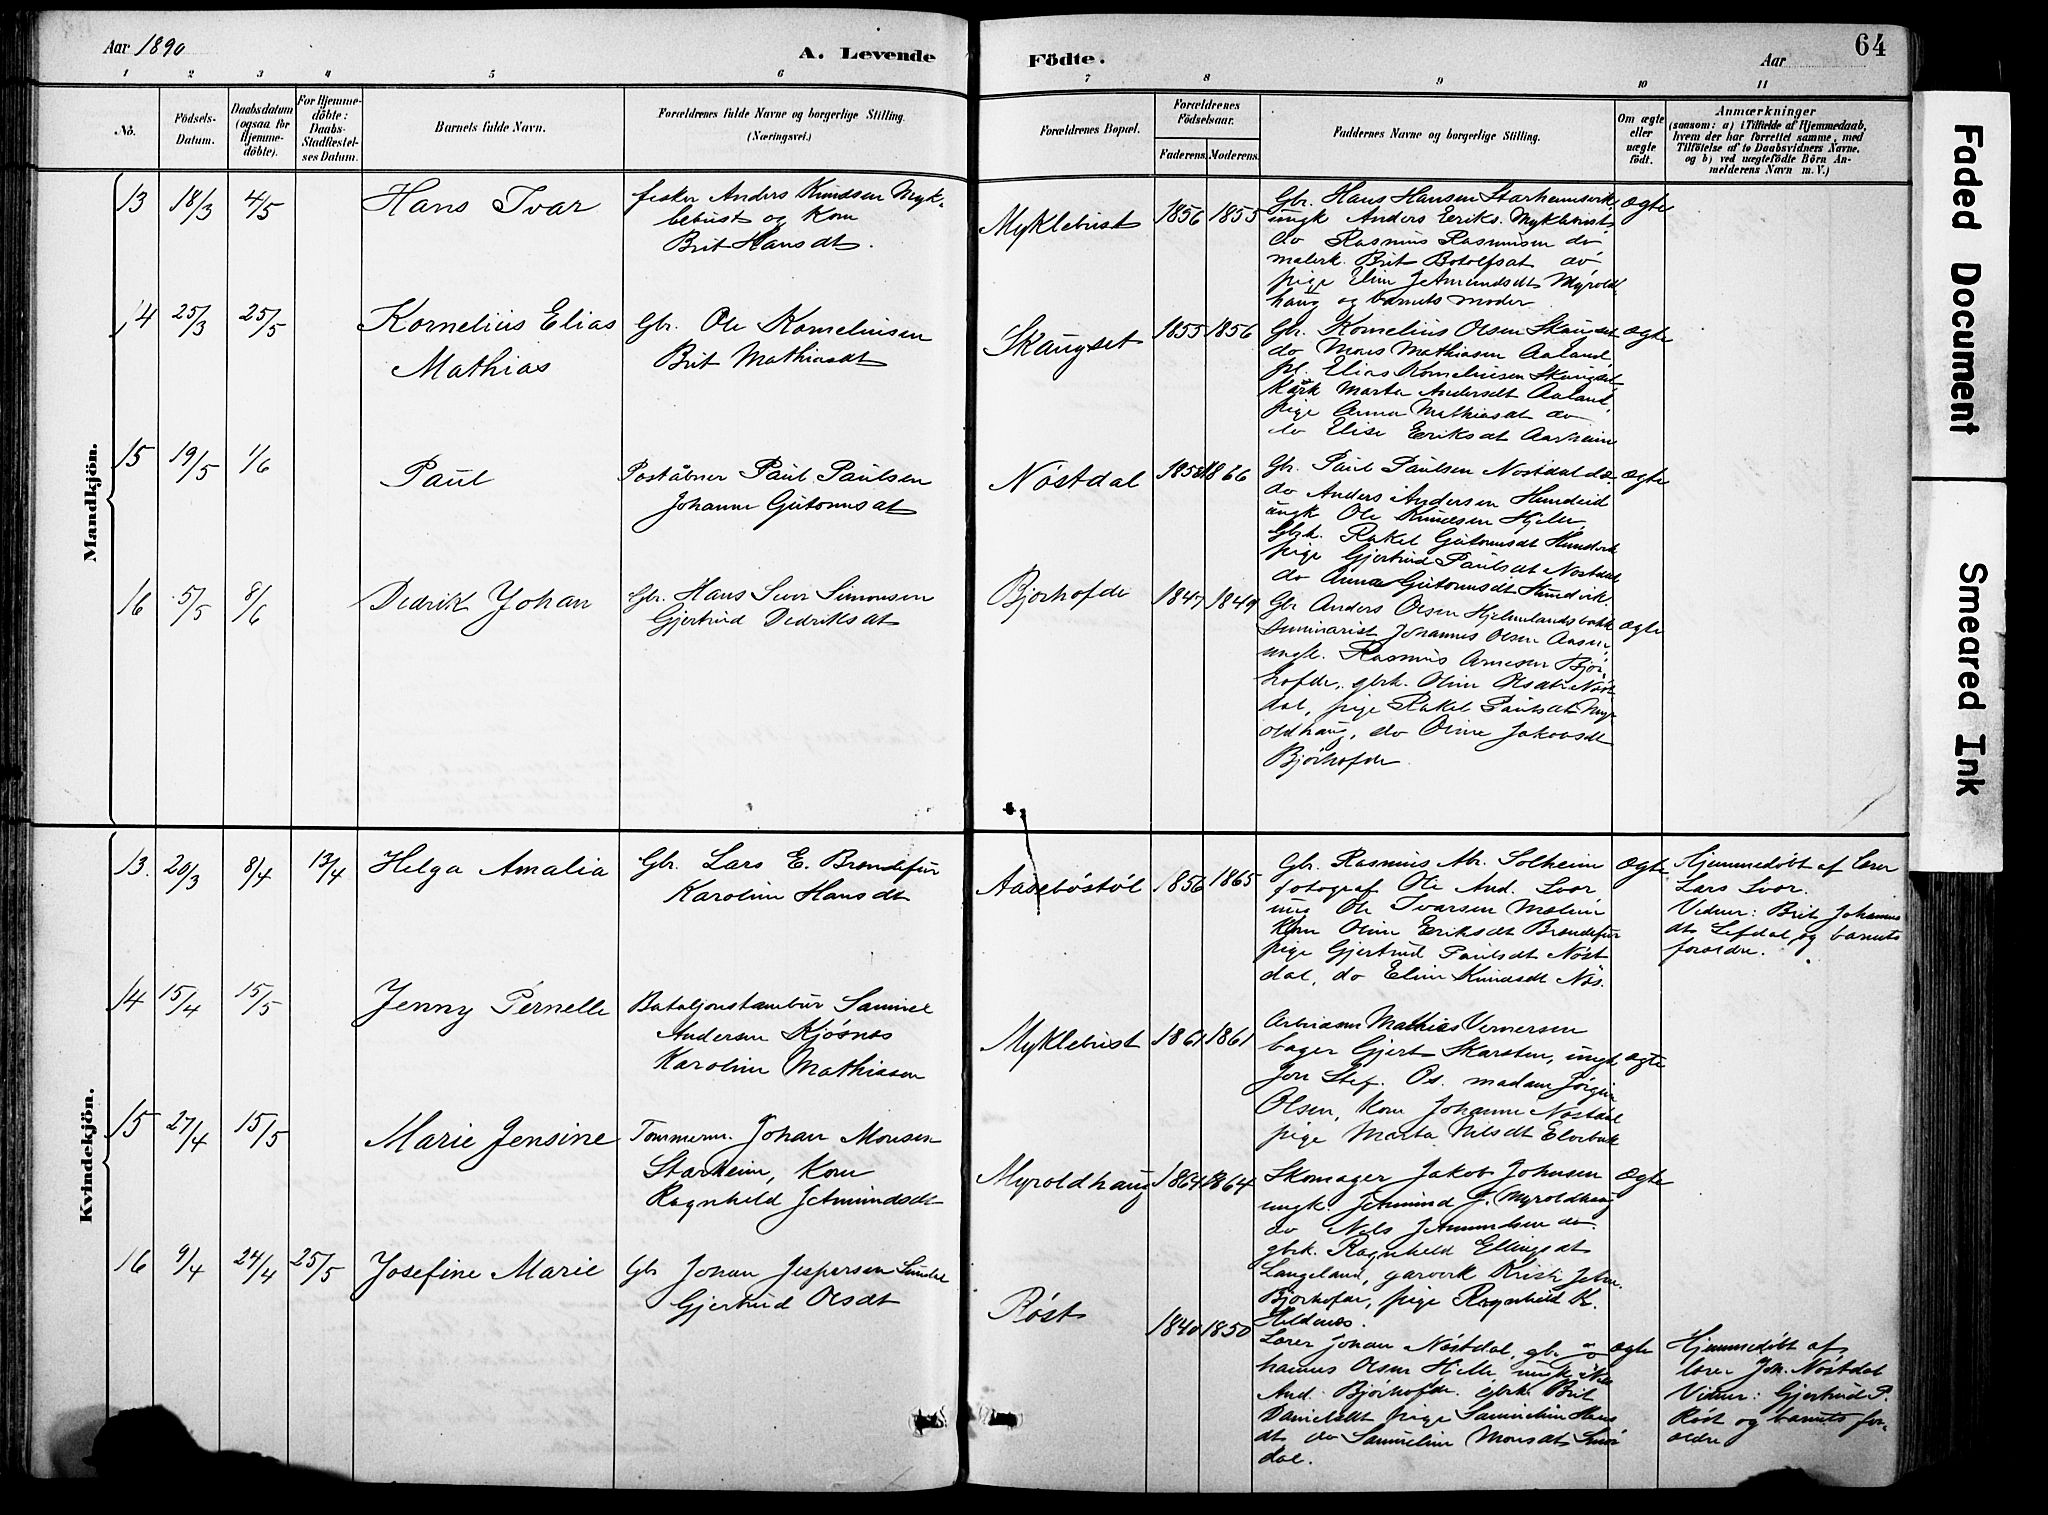 Aar 1890
A. Levende
Födte.
Aar
64
1 2 3 4 5 6 7 8 9 10 11
No.
Födsels-
Datum.
Daabsdatum
(ogsaa for
Hjemme-
döbte).
For Hjemme-
döbte:
Daabs-
Stadfæstel-
ses Datum.
Barnets fulde Navn.
Forældrenes fulde Navne og borgerlige Stilling.
(Næringsvei.)
Forældrenes Bopæl.
Forældrenes
Födselsaar.
Faderens. Moderens.
Faddernes Navne og borgerlige Stilling.
Om ægte
eller
uægte
födt.
Anmærkninger
(saasom: a) i Tilfælde af Hjemmedaab,
hvem der har forrettet samme, med
Tilföielse af to Daabsvidners Navne,
og b) ved uægtefödte Börn An-
melderens Navn m. V.)
Mandkjön.
13 18/3 4/5
Hans Ivar
fisker Anders Knudsen Myk-
lebust og Kone
Brit Hansdt.
Myklebust
1856 1855
Gbr. Hans Hansen Starheimsvik,
ungk Anders Eriks. Myklebust
do Rasmus Rasmusen do
malerk. Brit Botolfsdt do
pige Elin Jetmundsdt Myrold-
haug og barnets moder
ægte
14 25/3 25/5
Kornelius Elias
Mathias
Gbr. Ole Korneliusen
Brit Mathiasdt
Skaugset
1855 1856
Gbr. Kornelius Olsen Skaugset
do Mons Mathiasen Aaland,
pl. Elias Korneliusen Skaugset
Kark Marta Andersdt Aaland,
pige Anna Mathiasdt do
do Elise Eriksdt Aarheim
ægte
15 19/5 1/6
Paul
Poståbner Paul Paulsen
Johanne Gutormsdt
Nöstdal
1858 1866
Gbr. Paul Paulsen Nöstdal
do Anders Andersen Hundeid
ungk Ole Knudsen Hjelle,
Gbrk. Rakel Gutormsdt Hundvik
pige Gjertrud Paulsdt Nöstdal
do Anna Gutormsdt Hundvik.
ægte
16 5/5 8/6
Dedrik Johan
Gbr. Hans Iver Simonsen
Gjertrud Dedriksdt
Bjorhofde
1847 1849
Gbr Anders Olsen Hjelmelandsbakk
Seminarist Johannes Olsen Aasen
ungk. Rasmus Arnesen Björ-
hofde, gbrk. Oline Olsdt Nöst
dal, pige Rakel Paulsdt Myr
oldhaug, do Oline Jakobsdt
Björhofde
ægte
Kvindekjön.
13. 20/3 8/4 13/4
Helga Amalia
Gbr. Lars E. Brendefur
Karoline Hansdt
Aaseböstöl
1856 1865
Gbr. Rasmus Abr. Solheim
fotograf Ole And. Svor
ung Ole Ivarsen
Kone Oline Eriksdt Brendefur
pige Gjertrud Paulsdt Nöst
dal, do Elin Knudsdt Nös.
ægte
Hjemmedöbt af lærer
Lars Svor.
Vidner: Brit Johannes
dt Lefdal, og barnets
forældre.
14 15/4 15/5
Jenny Pernelle
Bataljonstambur Samuel
Andersen Kjösnes
Karoline Mathiasen
Myklebust
1861 1861
Mathias Vernersen
bager Gjert Skarsten, ungk
Jon Stef. Os. madam Jörgine
Olsen, Kone Johanne Nöstdal
pige Marta Nilsdt
ægte
15 27/4 15/5
Marie Jensine
Tömmerm. Johan Monsen
Starheim, Kone
Ragnhild Jetmundsdt
Myroldhaug
1864 1864
Skomager Jakob Johnsen
ungk. Jetmund J. Myroldhaug
do Nils Jetmundsen do.
gbrk. Ragnhild Ellingsdt
Langeland, garverk Kristi Jetm.
Björhofde, pige Ragnhild K.
Hildenes.
ægte
16 9/4 24/4 25/5
Josefine Marie
Gbr Johan Jespersen
Gjertrud Olsdt
Röst
1840 1850
Lærer Johan Nöstdal, gbr Jo-
hannes Olsen Hjelle, ungk Nils
And. Björhofde. gbrk. Brit
Danielsdt pige Samueline Hans
dt do Samueline Monsdt Smör
dal.
ægte
Hjemmedöbt af
lærer Joh. Nöstdal
Vidner: Gjertrud P.
Röst og barnets for-
ældre
Faded Document
Smeared Ink